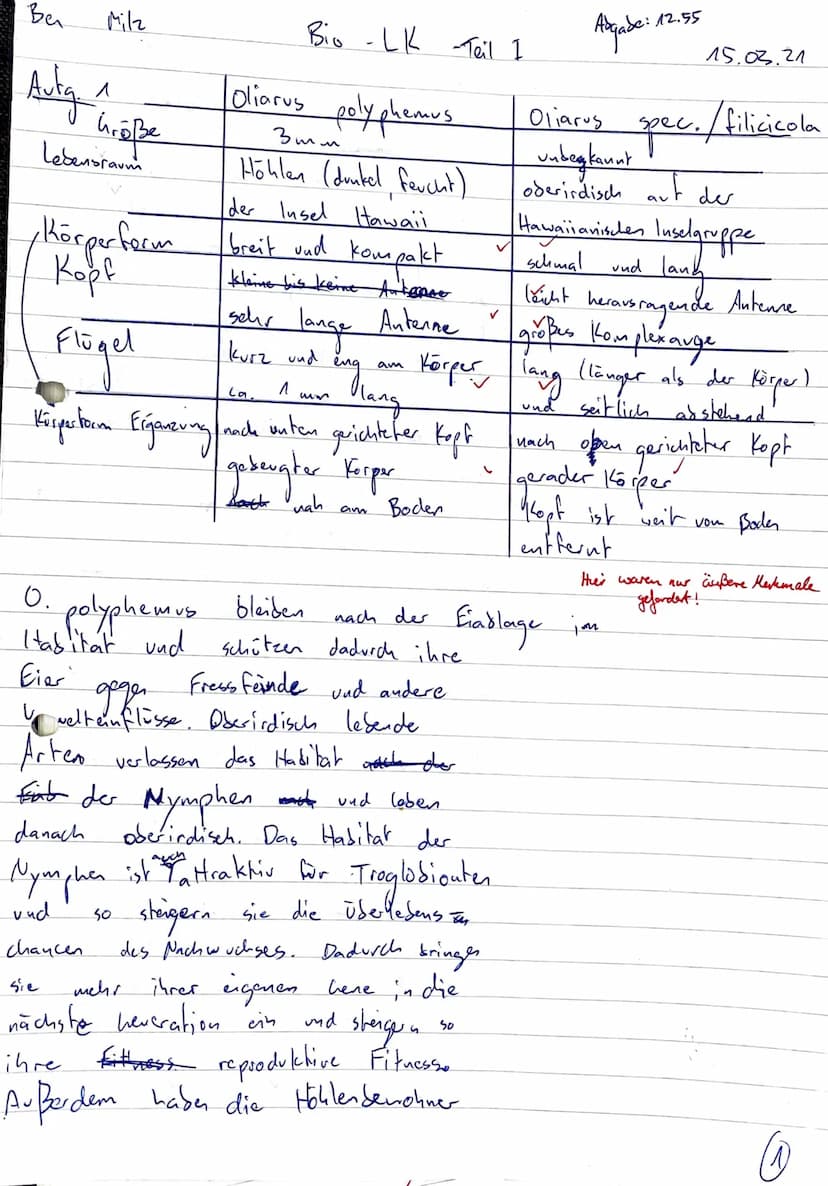 Ben Milz
Bio - LK - Teil I
Abgabe: 12.55
15.03.21
Aufg. 1 Oliarus polyphemus Oliarus spec./filicicola
Größe 3mm unbegkannt
Lebensraum Höhlen (dunkel, feucht) oberirdisch auf der
der Insel Hawaii Hawaiianischen Inselgruppe
Körperform breit und kompakt schmal und lang
Kopf kleine bis keine Antenne leicht herausragende Antenne
sehr lange Antenne großes Komplexauge
Flügel kurz und eng am Körper lang (länger als der Körper)
ca. 1 mm lang und seitlich abstehend
Körperform Ergänzung nach unten gerichteter Kopf nach oben gerichteter Kopf
gebeugter Körper gerader Körper
nah am Boden Kopf ist weit vom Boden
entfernt
Hier waren nur äußere Merkmale
gefordert!
O. polyphemus bleiben nach der Eiablage im
Habitat und schützen dadurch ihre
Eier gegen Fressfeinde und andere
Umwelteinflüsse. Oberirdisch lebende
Arten verlassen das Habitat nach der
der Nymphen und leben
danach oberirdisch. Das Habitat der
Nymphen ist auch attraktiv für Troglobionten
und so steigern sie die Überlebens
chancen des Nachwuchses. Dadurch bringen
sie mehr ihrer eigenen Gene in die
nächste Generation ein und steigern so
ihre Fittness reproduktive Fitness.
Außerdem haben die Höhlenbewohner
1